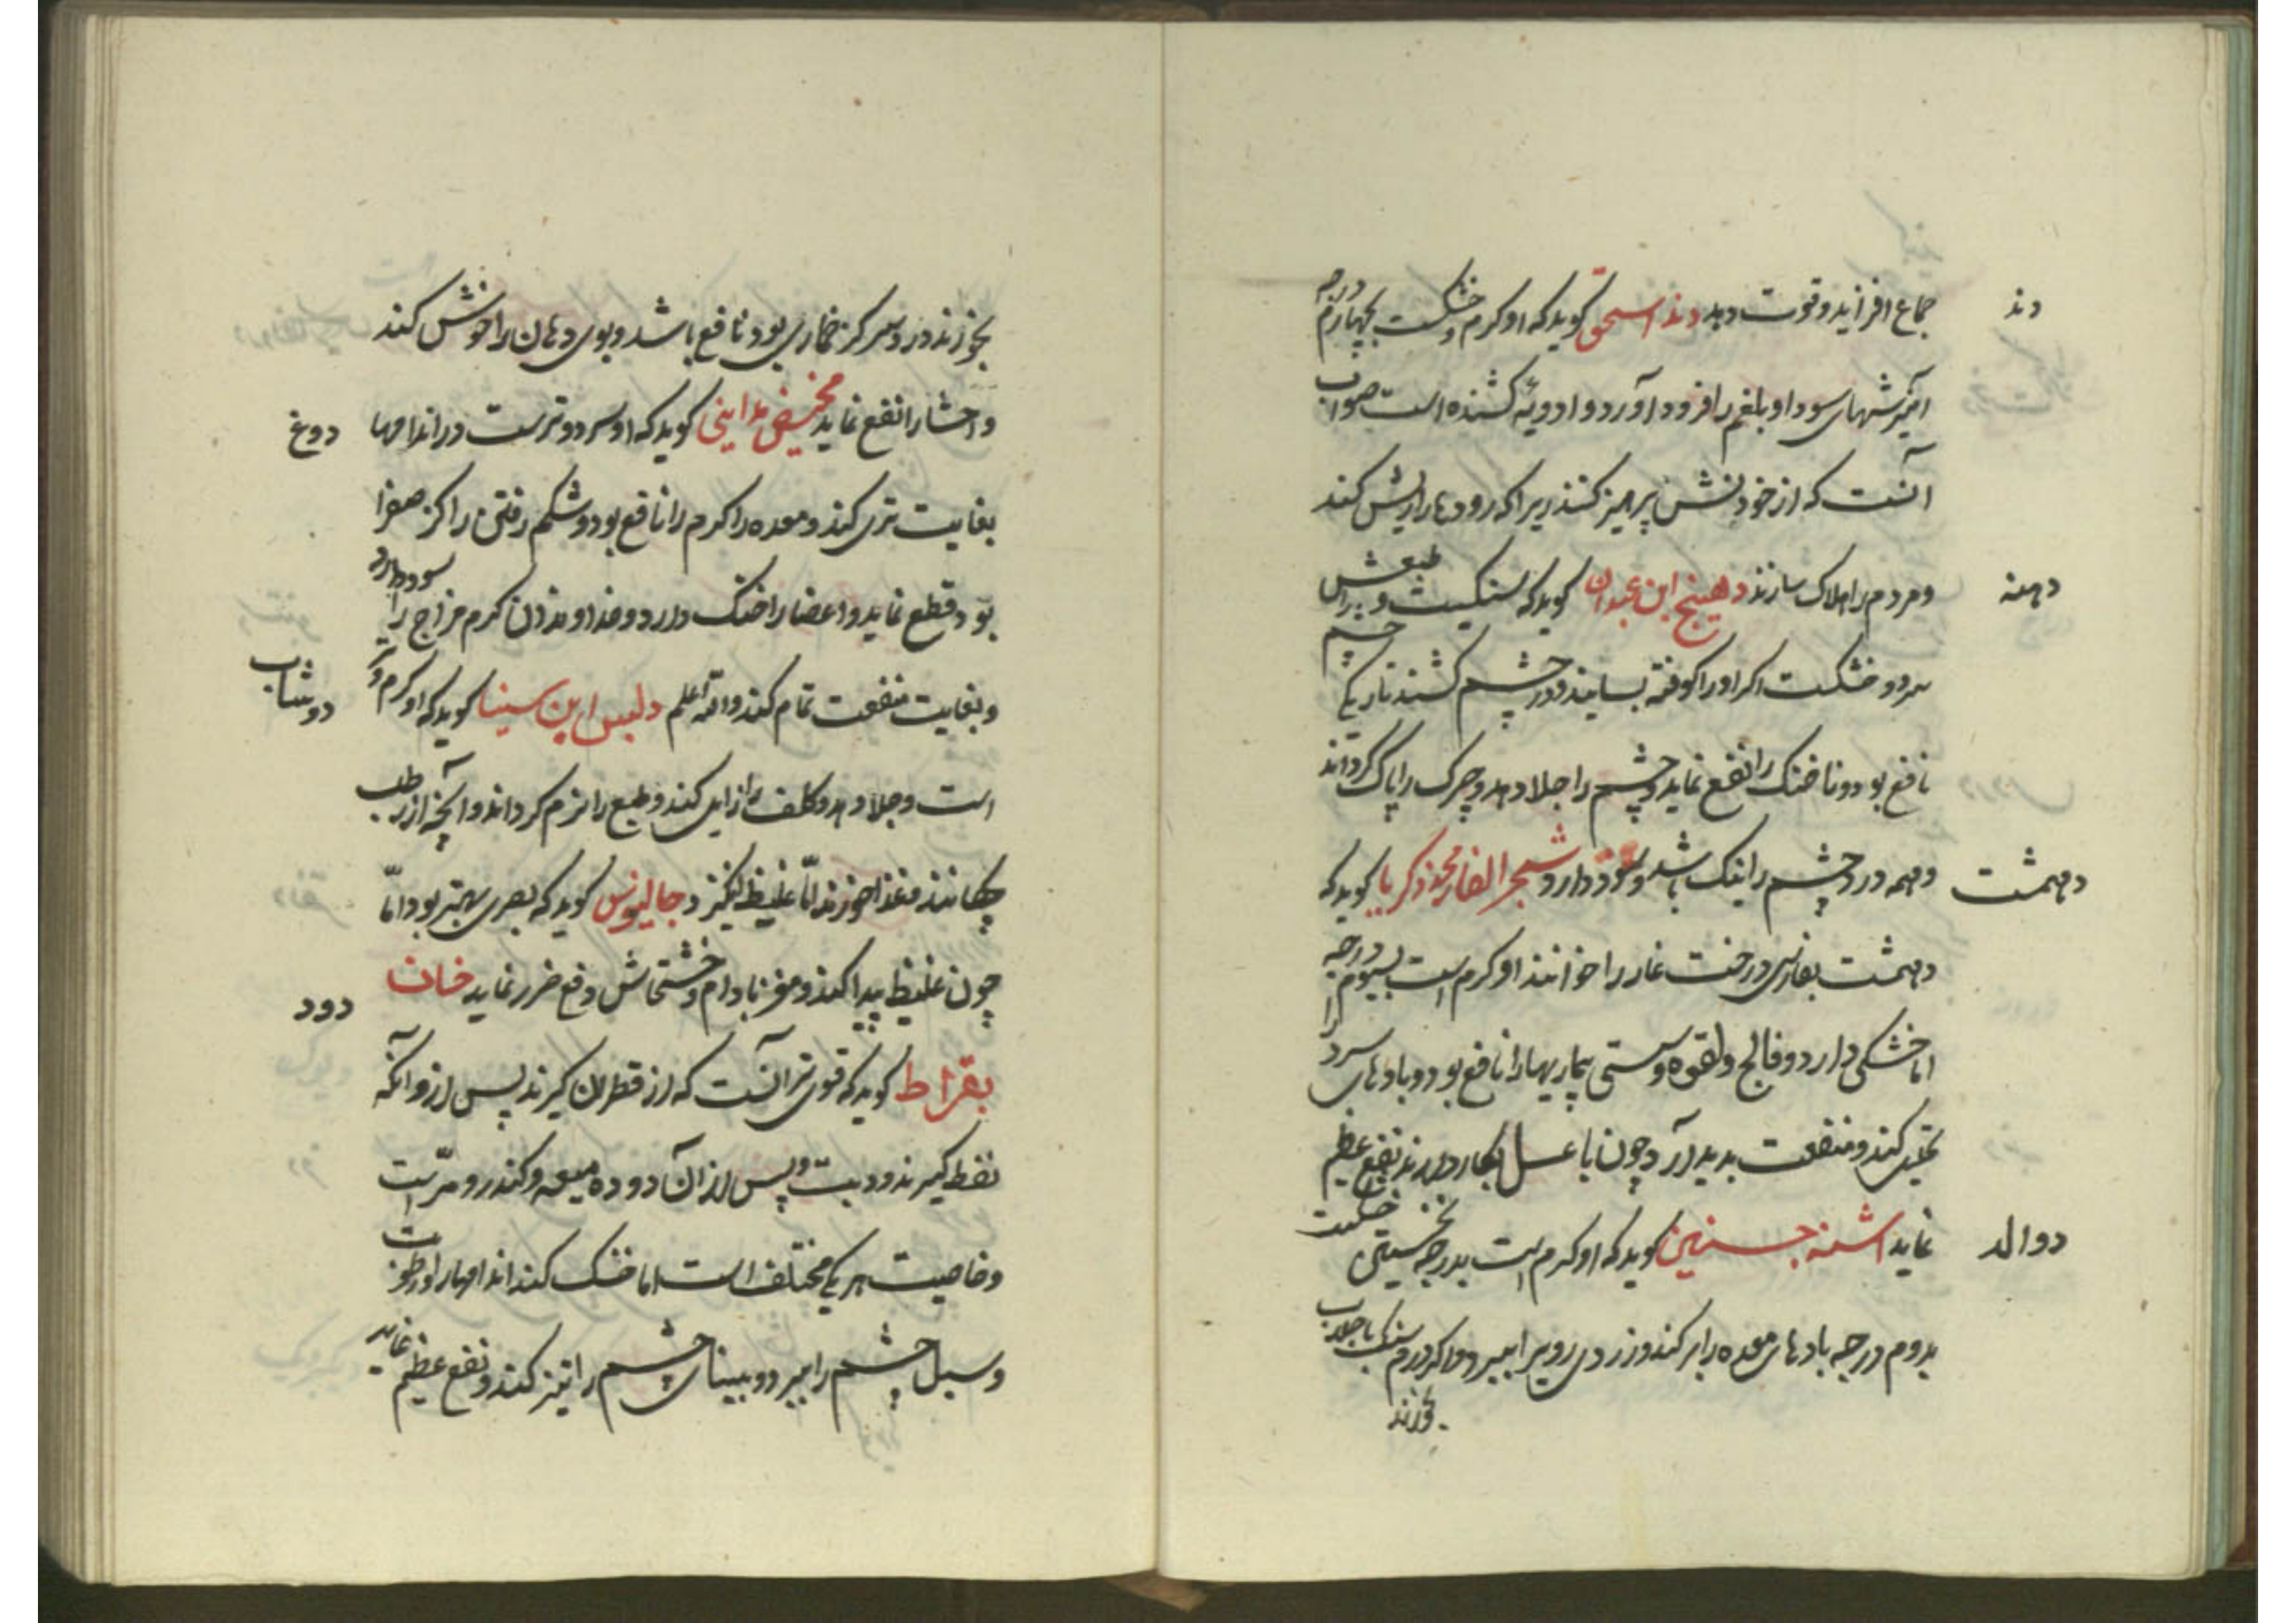 دند
جماع افزاید و قوت دهد دند اسحق کوید که او کرم و خشکست بچهارم درجه
آمیزشهای سودا و بلغم را فرود آورد و ادویهٔ کشنده است صواب
آنست که از خوردنش پرهیز کنند زیرا که رودها را ریش کند
دهنه
و مردم را هلاک سازند دهینج ابن عبدان کوید که سنکیست و طبعش
سرد و خشکست اکر او را کوفته بسایند و در چشم کشند تاریکی چشم
نافع بود و ناخنک را نفع نماید و چشم را جلا دهد و چرک را پاک کرداند
دهمشت
و همه درد چشم را نیک باشد و سود دارد شجر الغار محمد زکریا کوید که
دهمشت بفارسی درخت غار را خوانند او کرم است بسیوم درجه
اما خشکی دارد و فالج و لقوه و سستی بیماریها را نافع بود و بادهای سرد را
تحلیل کند و منفعت پدید آرد چون با عسل بکار دارند نفع عظیم
دوالد
نماید اشنه کوید که او کرم است بدرجه نخستین خشکست
بدوم درجه بادهای معده را بر کند و زردی روی را ببرد اکر درم سنک با جلاب
بخورند
بخورند درد سر کز خماری بود نافع باشد و بوی دهان را خوش کند
دوغ
و احشا را نفع نماید مخیض مداینی کوید که او سرد و ترست در اندامها
بغایت تری کند و معده را کرم را نافع بود و شکم رفتن را کز صفرا
بود قطع نماید و اعضا را خنک دارد و خداوندان کرم مزاج را سود دارد
دوشاب
و بغایت منفعت تمام کند والله اعلم دلبس ابن سینا کوید که او کرم و تر
است و جلا دهد و کلف را زایل کند و طبع را نرم کرداند و آنچه از رطب
چکانند و غذا خورند امّا غلیظ انکیزد جالینوس کوید که بصری بهتر بود امّا
دود
چون غلیظ پیدا کند و مغز بادام و خشخاش دفع ضرر نماید دخان
بقراط کوید که قوی‌تر آنست که از قطران کیرند پس از و آنکه
نفط کیرند و دبیت و پس از آن دوده میعه و کندر و مرّ است
و خاصیت هر یکی مختلف است اما خشک کند اندامها را و رطوبت
و سبل چشم را ببرد و بینای چشم را تیز کند و نفع عظیم نماید